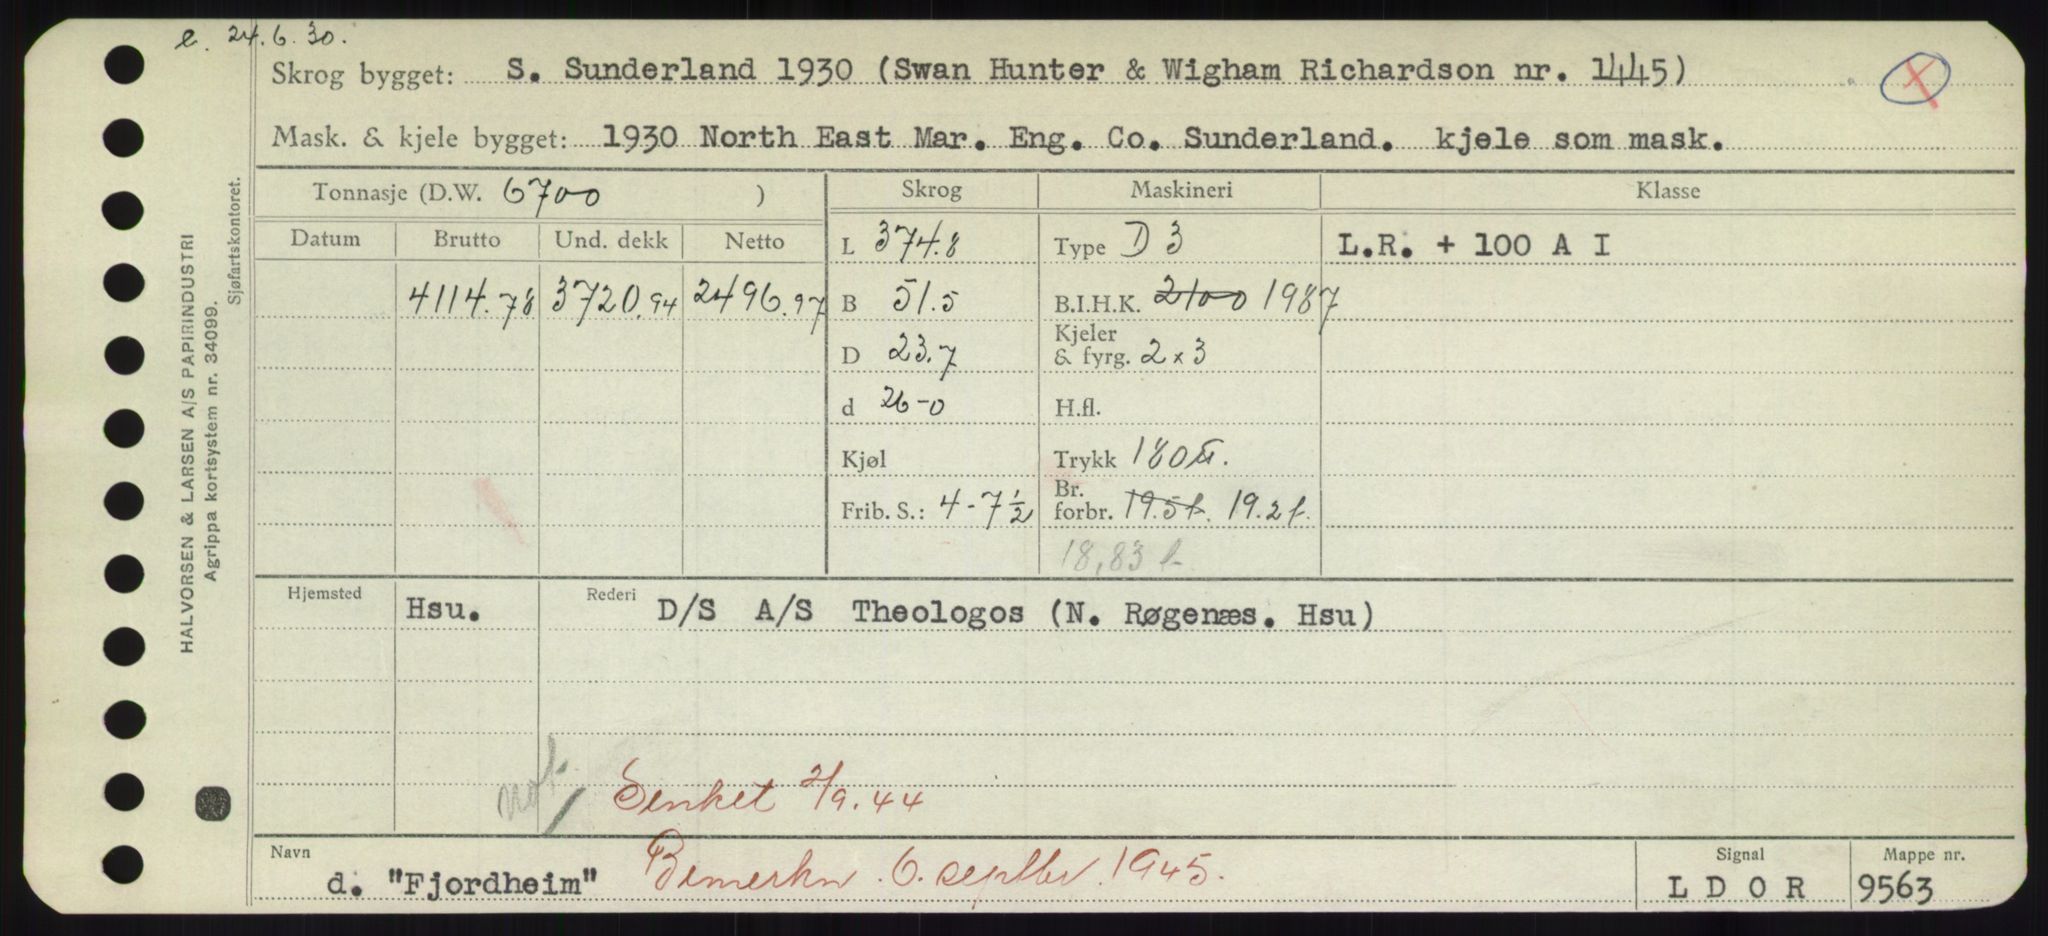 e. 24.6.30.
Skrog bygget: S. Sunderland 1930 (Swan Hunter & Wigham Richardson nr. 1445)
Mask. & kjele bygget: 1930 North East Mar. Eng. Co. Sunderland. kjele som mask.
Tonnasje (D.W. 6700 ) Skrog Maskineri Klasse
Datum Brutto Und. dekk Netto L 374.8 Type D 3 L.R. + 100 A I
4114.78 3720.94 2496.97 B 51.5 B.I.H.K. 2100 1987
D 23.7 Kjeler & fyrg. 2 x 3
d 26-0 H.fl.
Kjøl Trykk 180 lb.
Frib. S.: 4-7½ Br. forbr. 19.5 t. 19.2 t.
18,83 t
Hjemsted Hsu. Rederi D/S A/S Theologos (N. Røgenæs. Hsu)
not. Senket 2/9.44
Navn d. "Fjordheim" Bemerkn. 6. septbr. 1945. Signal L D O R Mappe nr. 9563
HALVORSEN & LARSEN A/S PAPIRINDUSTRI
Agrippa kortsystem nr. 34099.
Sjøfartskontoret.